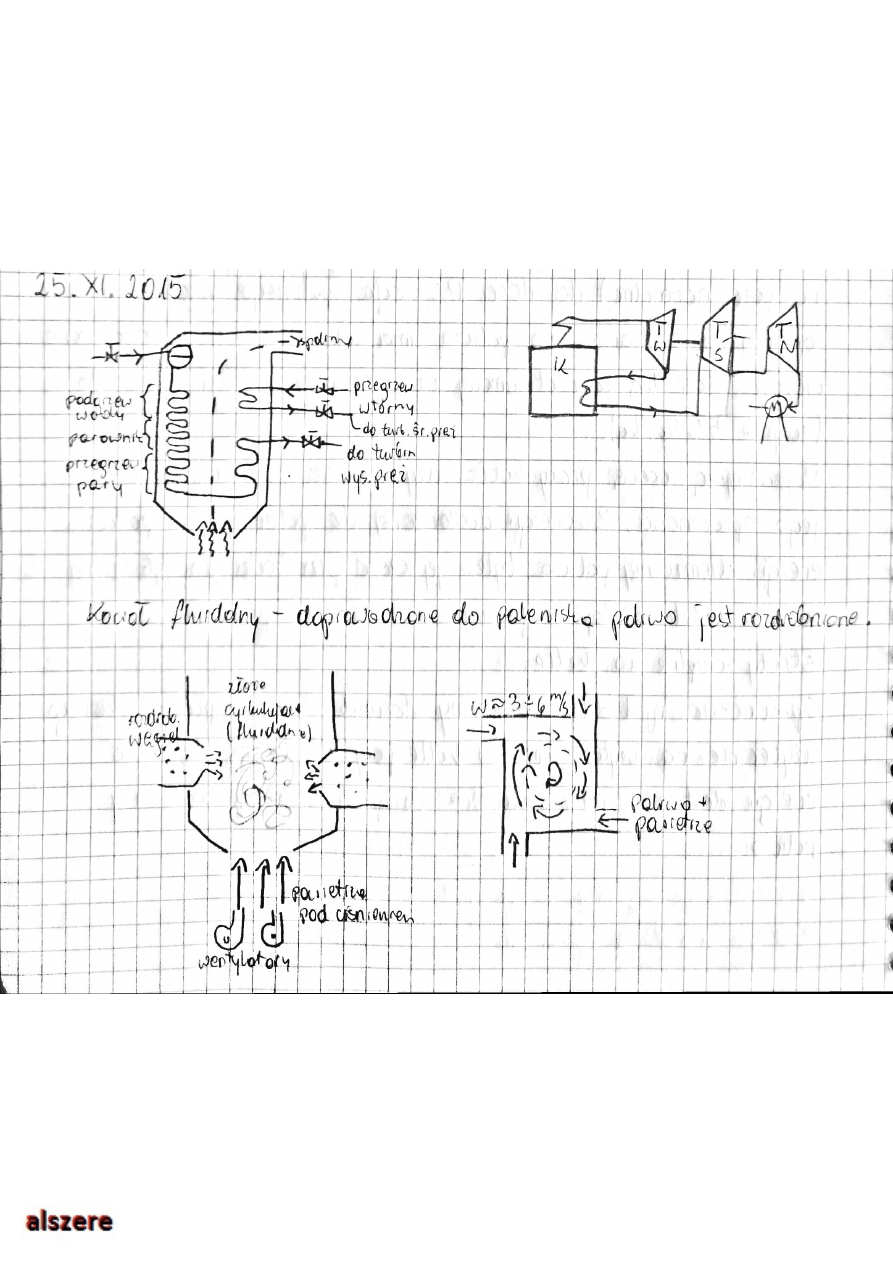 25. XI. 2015
spaliny
podgrzew
wody
parownik
przegrzew
pary
przegrzew
wtórny
do turb. śr. pręż
do turbin
wys. pręż
K
T
W
T
S
T
N
Kocioł fluidalny – doprowadzone do paleniska paliwo jest rozdrobnione.
rozdrob.
węgiel
złoże
cyrkulujące
(fluidalne)
powietrze
pod ciśnieniem
wentylatory
w ≈ 3 ÷ 6 m/s
paliwo +
powietrze
alszere